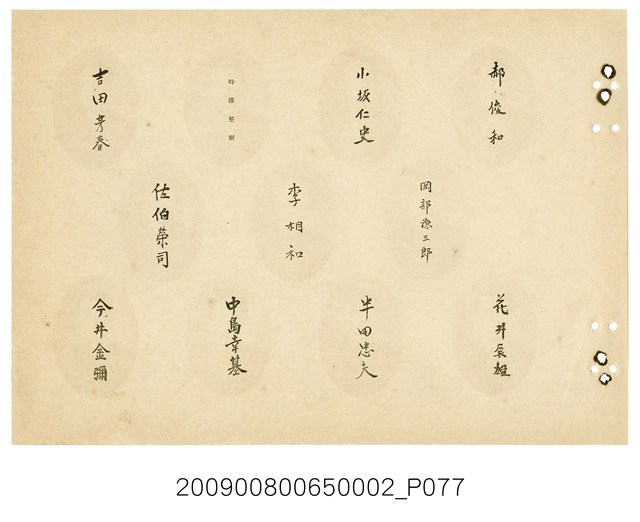 郝俊和
小坂仁史
吉田芳春
岡部源三郎
李相和
佐伯榮司
花井辰雄
半田忠夫
中島幸基
今井金彌
200900800650002_P077